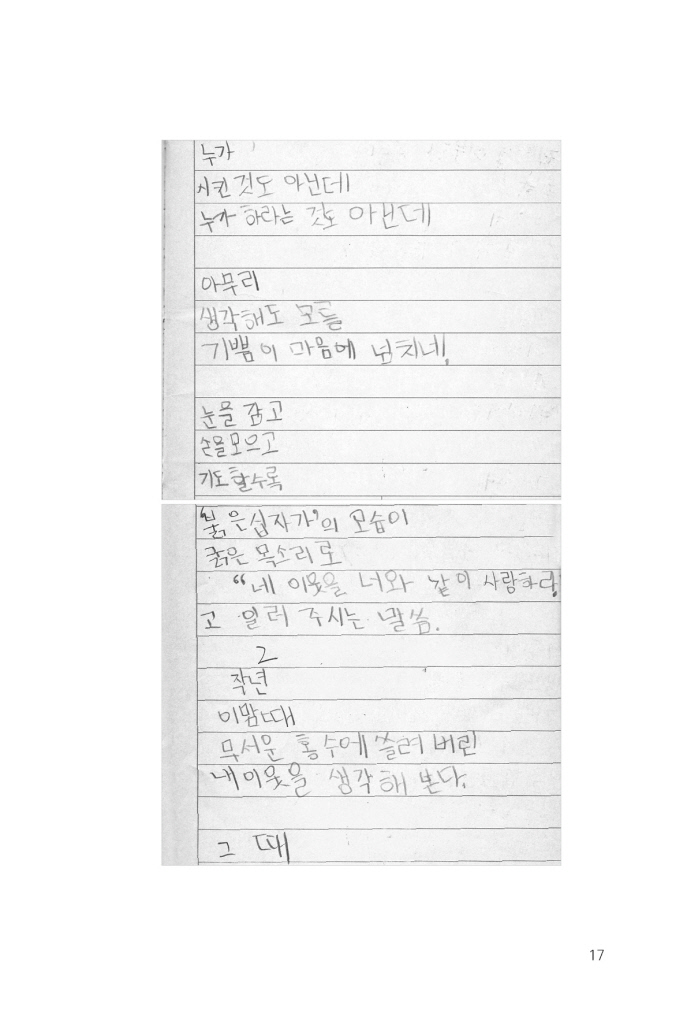 누가
시킨 것도 아닌데
누가 하라는 것도 아닌데
아무리
생각해도 모를
기쁨이 마음에 넘치네.
눈을 감고
손을모으고
기도할수록
'붉은십자가'의 모습이
굵은 목소리로
"네 이웃을 너와 같이 사랑하라
고 일러 주시는 말씀.
2
작년
이맘때
무서운 홍수에 쓸려 버린
내이웃을 생각해 본다.
그 때
17